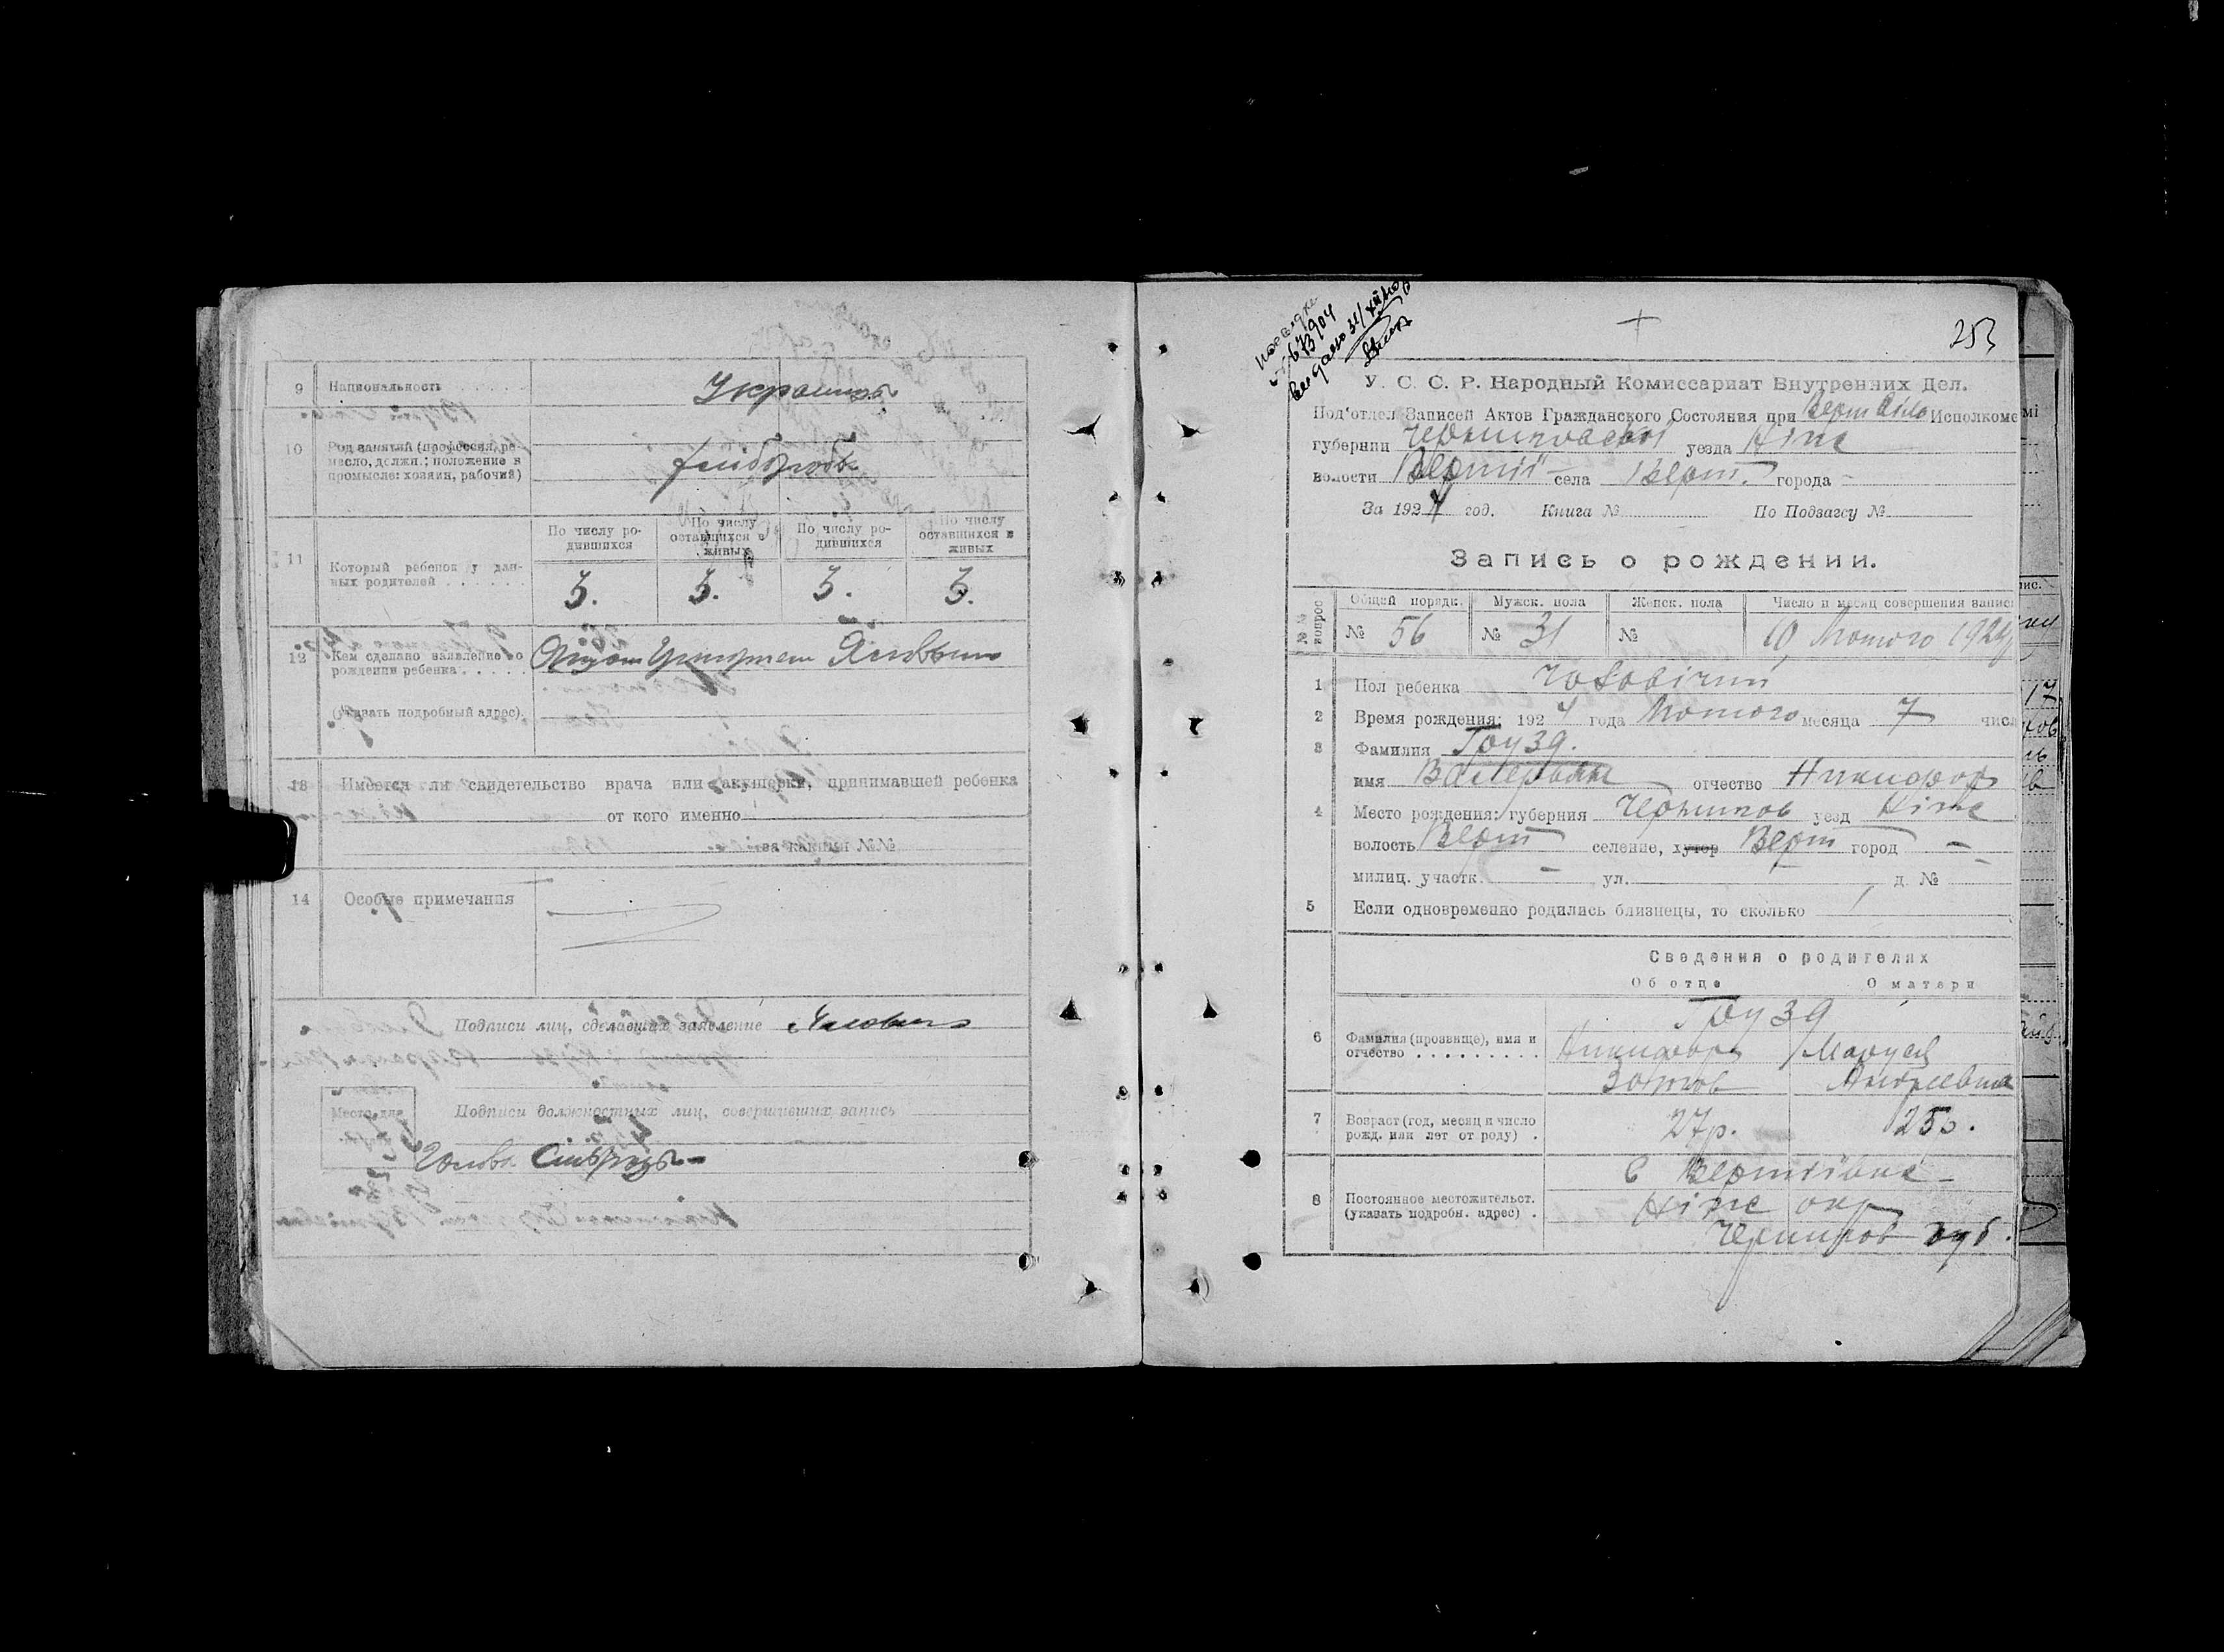 9 Национальность Украинцы
10 Род занятий (профессия, ре-
месло, должн.; положение в
промысле: хозяин, рабочий)
хліборобы
11 Который ребенок у дан-
ных родителей
По числу ро-
дившихся
По числу
оставшихся в
живых
По числу ро-
дившихся
По числу
оставшихся в
живых
3. 3. 3. 3.
12 Кем сделано заявление о
рождении ребенка
(Указать подробный адрес).
13 Имеется ли свидетельство врача или акушерки, принимавшей ребенка
от кого именно
за каким №№
14 Особые примечания
Подписи лиц, сделавших заявление
Место для
Подписи должностных лиц, совершивших запись
Голова
253
У. С. С. Р. Народный Комиссариат Внутренних Дел.
Под'отдел Записей Актов Гражданского Состояния при Верт Исполкоме
губернии Черниговської уезда Ніже
волости Верт села Верт. города –
За 1924 год. Книга № По Подзагсу №
Запись о рождении.
№№ вопрос
Общей порядк. Мужск. пола Женск. пола Число и месяц совершения записи
№ 56 № 31 № 10 Лютого 1924
1 Пол ребенка Чоловічий
2 Время рождения: 1924 года Лютого месяца 7 числ
3 Фамилия Грузд.
имя Валерьян отчество Никифор
4 Место рождения: губерния Чернигов уезд Ніже
волость Верт селение, хутор Верт город –
милиц. участк. – ул. д. №
5 Если одновременно родились близнецы, то сколько
Сведения о родителях
Об отце О матери
6 Фамилия (прозвище), имя и
отчество
Грузд
Никифор Маруся
Андреевна
7 Возраст (год, месяц и число
рожд. или лет от роду) .
27р. 25р.
8 Постоянное местожительст.
(указать подробн. адрес) .
с Вертіївка
Ніже окр
Чернигов губ.